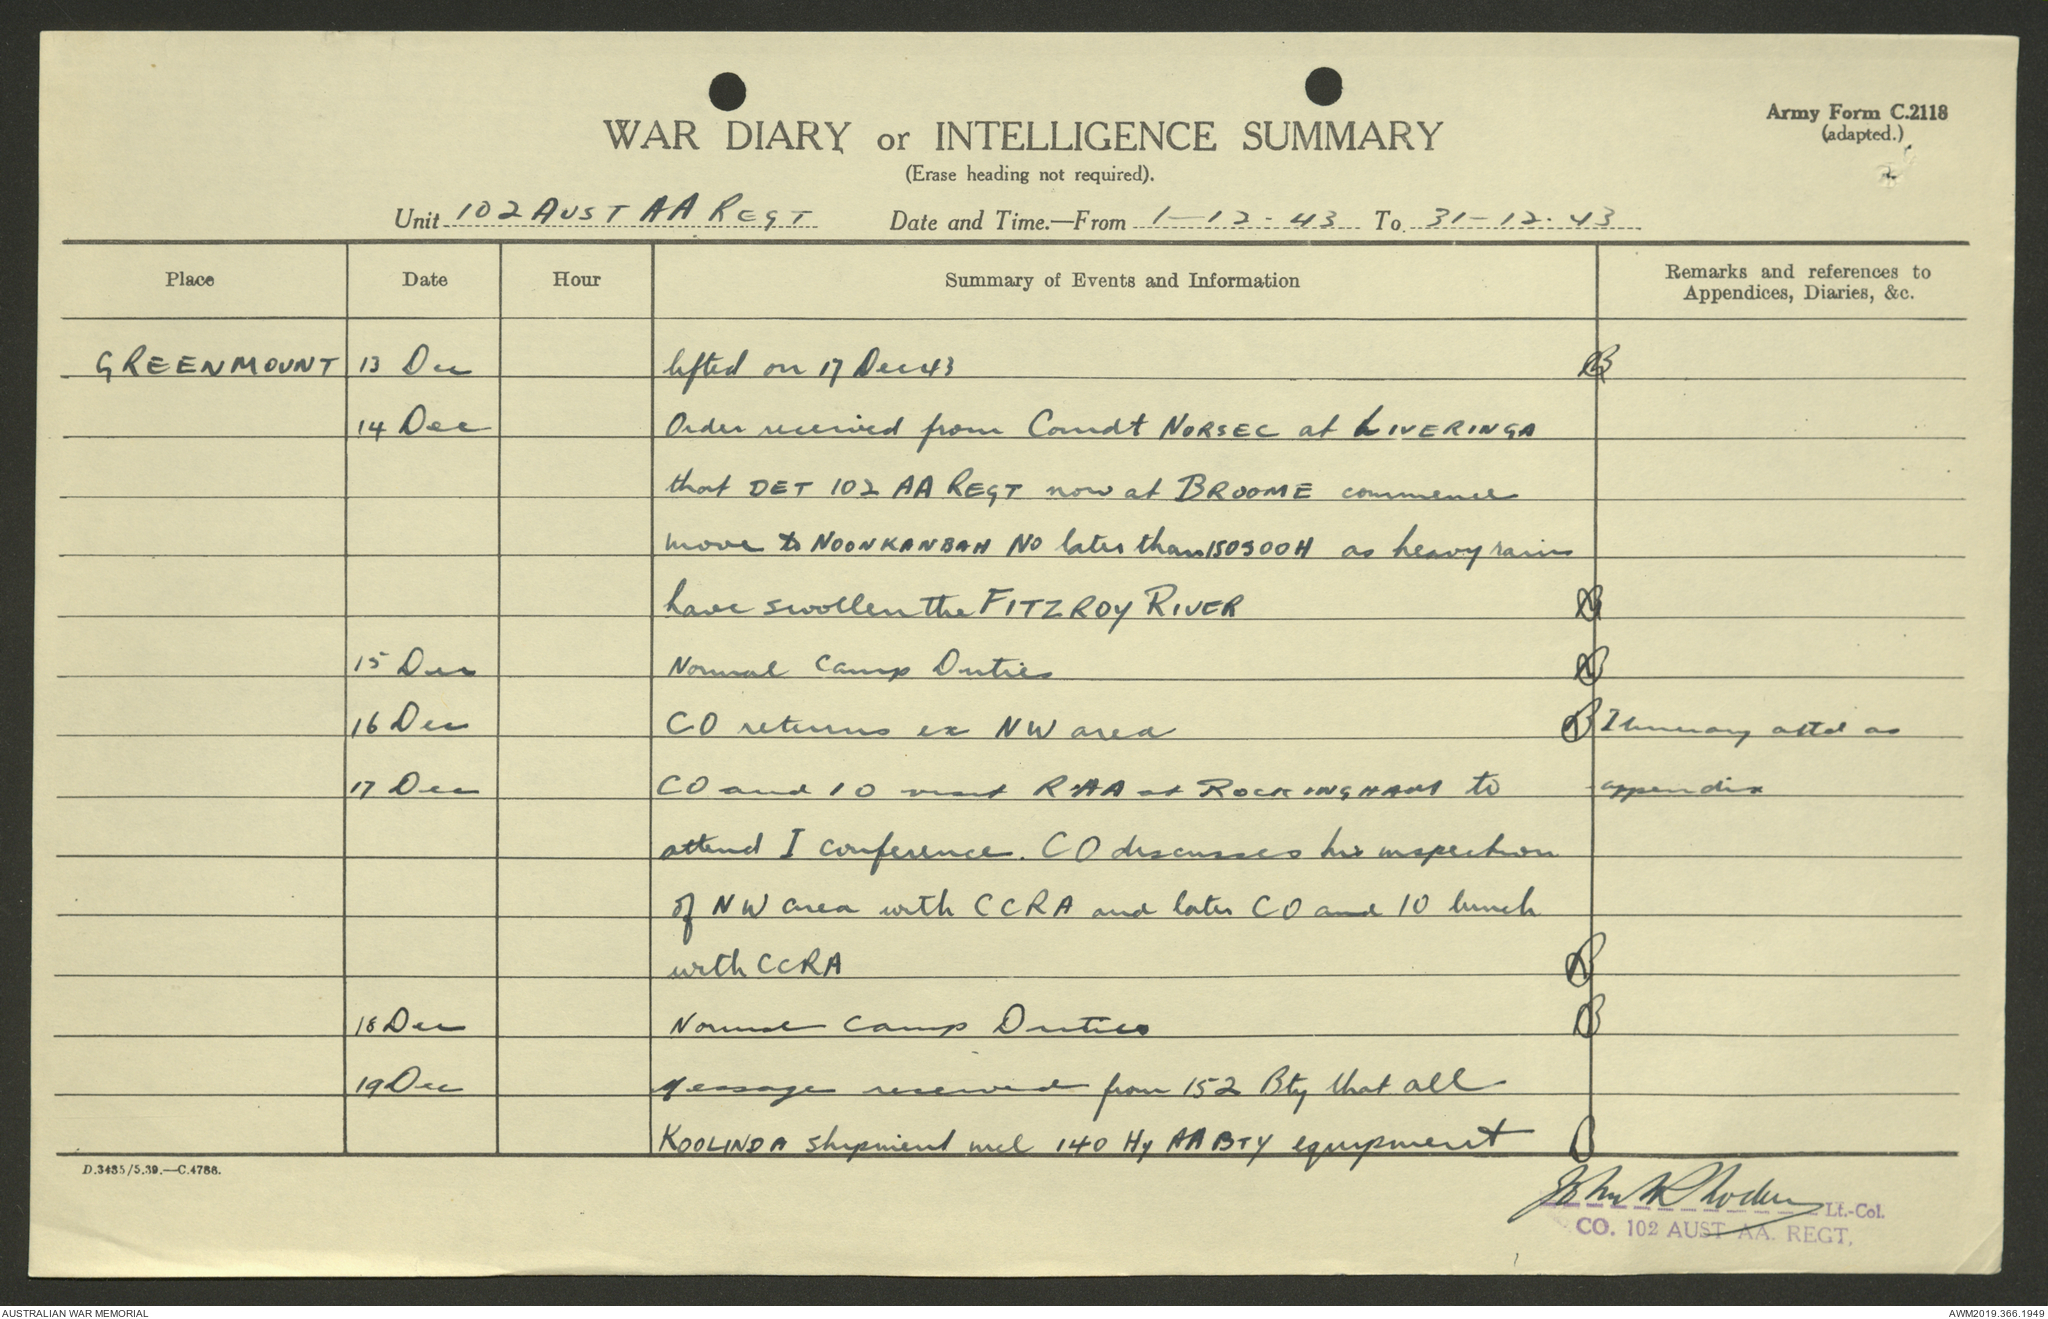 Army Form C.2118
(adapted.)
WAR DIARY or INTELLIGENCE SUMMARY
(Erase heading not required).
Unit 102 AUST AA REGT Date and Time.—From 1-12-43 To 31-12-43
Place Date Hour Summary of Events and Information Remarks and references to
Appendices, Diaries, &c.
GREENMOUNT 13 Dec lifted on 17 Dec 43
14 Dec Order received from Comdt NORSEC at LIVERINGA
that DET 102 AA REGT now at BROOME commence
move to NOONKANBAH NO later than 150900H as heavy rains
have swollen the FITZROY RIVER
15 Dec Normal Camp Duties
16 Dec CO returns ex NW area Itinerary attd as
17 Dec CO and IO visit RAA at ROCKINGHAM to appendix
attend I conference. CO discusses his inspection
of NW area with CCRA and later CO and IO lunch
with CCRA
18 Dec Normal Camp Duties
19 Dec Message received from 152 Bty that all
KOOLINDA shipment incl 140 Hy AA BTY equipment
D.3435/5.39.—C.4786.
Lt.-Col.
CO. 102 AUST AA. REGT.
AUSTRALIAN WAR MEMORIAL AWM2019.366.1949